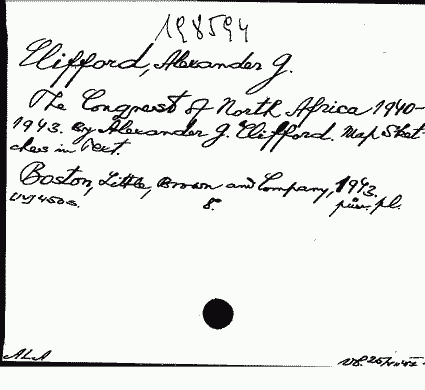 198594
Clifford, Alexander G.
The Conquest of North Africa 1940-
1943. By Alexander G. Clifford. Map Sket-
ches in Text.
Boston, Little, Brown and Company, 1943.
8. pl.
ALA